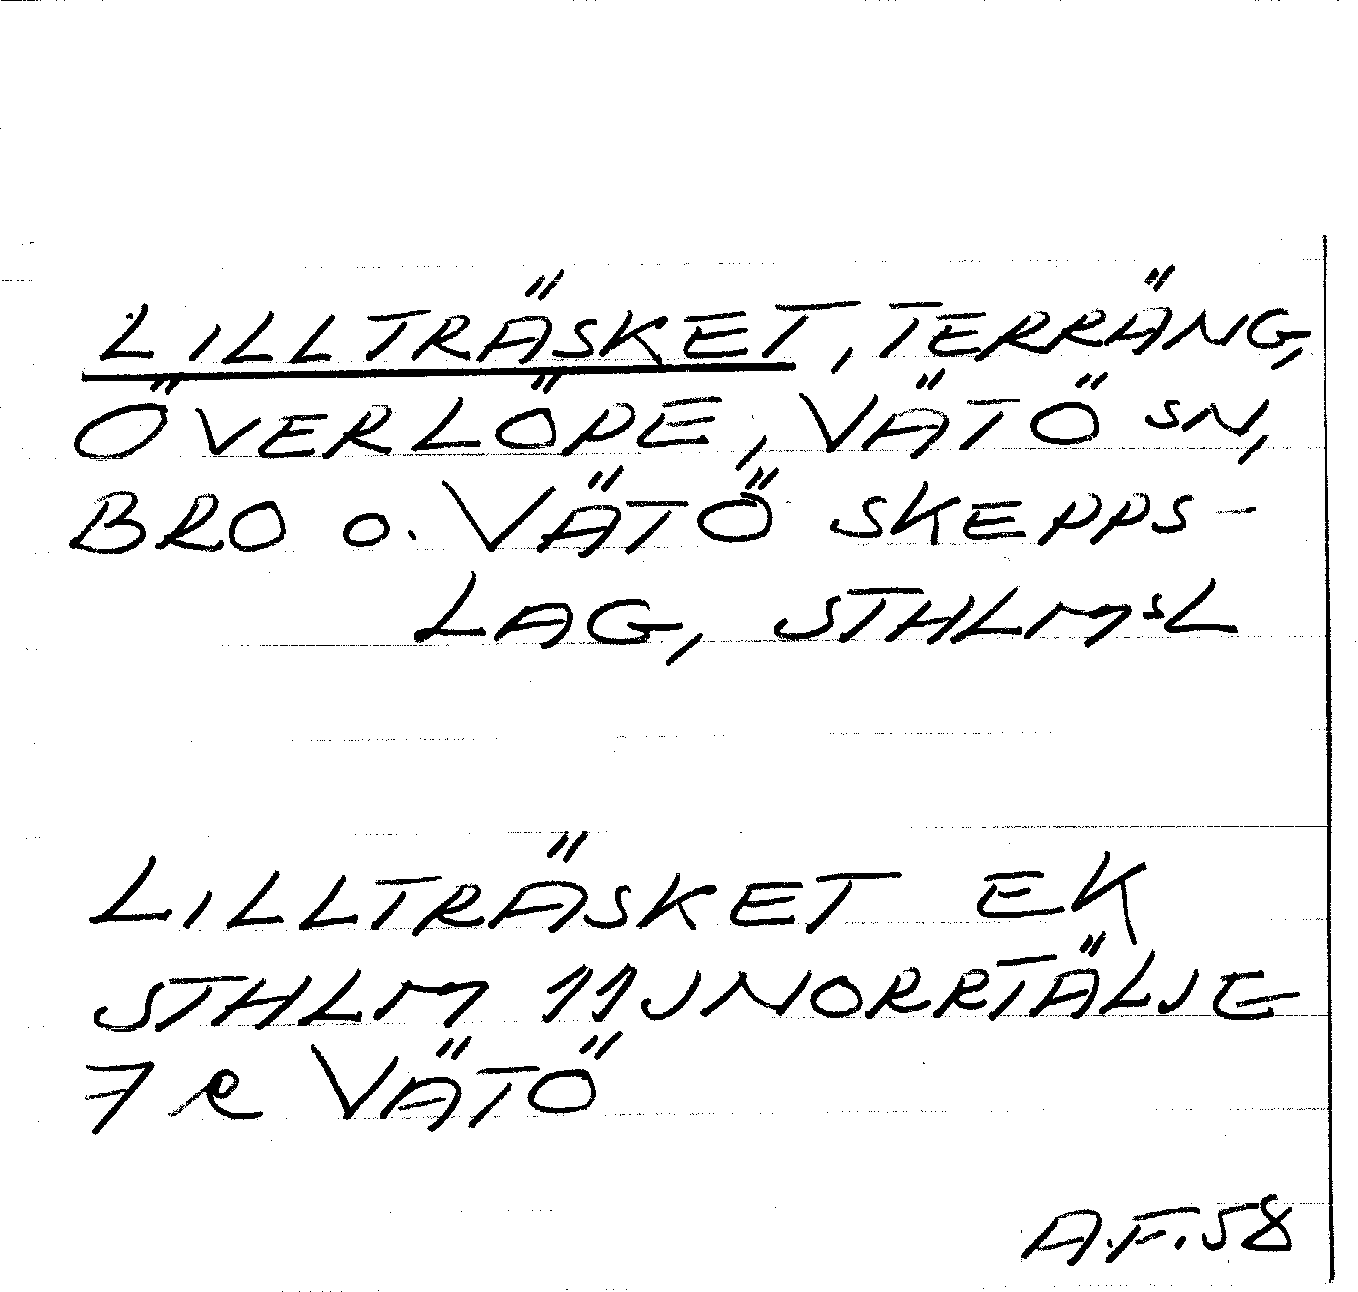 LILLTRÄSKET, TERRÄNG,
ÖVERLÖPE, VÄTÖ SN,
BRO O. VÄTÖ SKEPPS-
LAG, STHLMSL
LILLTRÄSKET EK
STHLM 11J NORRTÄLJE
7 R VÄTÖ
A.F.58